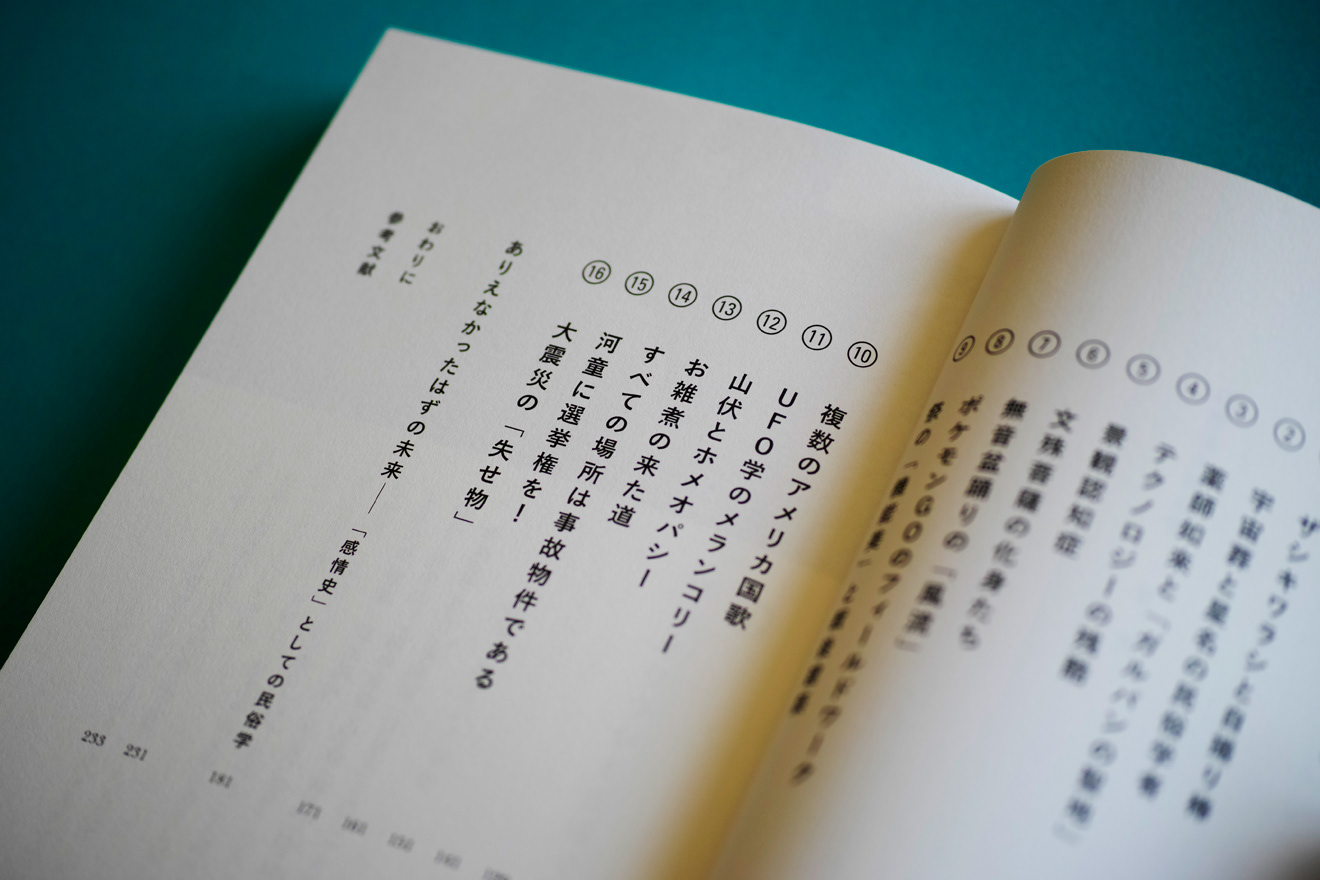 ザシキワラシと自撮り棒
② 宇宙
③ 薬師如来と「ガルパンの聖地」
④ テクノロジーの残
⑤ 景観認知症
⑥ 文殊菩薩の化身たち
⑦ 無音盆踊りの「風流」
⑧ ポケモンGOのフィールドワーク
⑨
⑩ 複数のアメリカ国歌
⑪ UFO学のメランコリー
⑫ 山伏とホメオパシー
⑬ お雑煮の来た道
⑭ すべての場所は事故物件である 151
⑮ 河童に選挙権を! 161
⑯ 大震災の「失せ物」 171
ありえなかったはずの未来――「感情史」としての民俗学 181
おわりに 231
参考文献 233